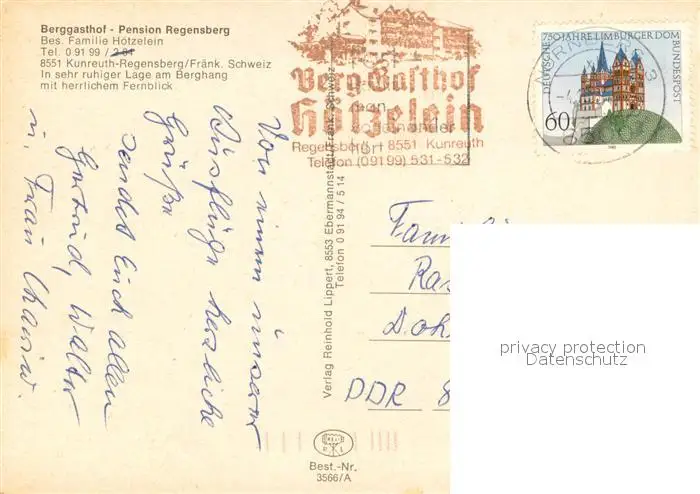 Berggasthof - Pension Regensberg
Bes. Familie Hötzelein
Tel. 0 91 99 /
8551 Kunreuth-Regensberg/Fränk. Schweiz
In sehr ruhiger Lage am Berghang
mit herrlichem Fernblick
Berg-Gasthof
Hötzelein
Regensberg 8551 Kunreuth
Telefon (09199) 531-532
DEUTSCHE BUNDESPOST
750 JAHRE LIMBURGER DOM
60
Von einem unserer
Ausflüge herzliche
Grüße
sendet Euch allen
Gertrud, Walter
u. Frau
Verlag Reinhold Lippert, 8553 Ebermannstadt/Fränk. Schweiz
Telefon 0 91 94 / 5 14
DDR 8
privacy protection
Datenschutz
Best.-Nr.
3566/A